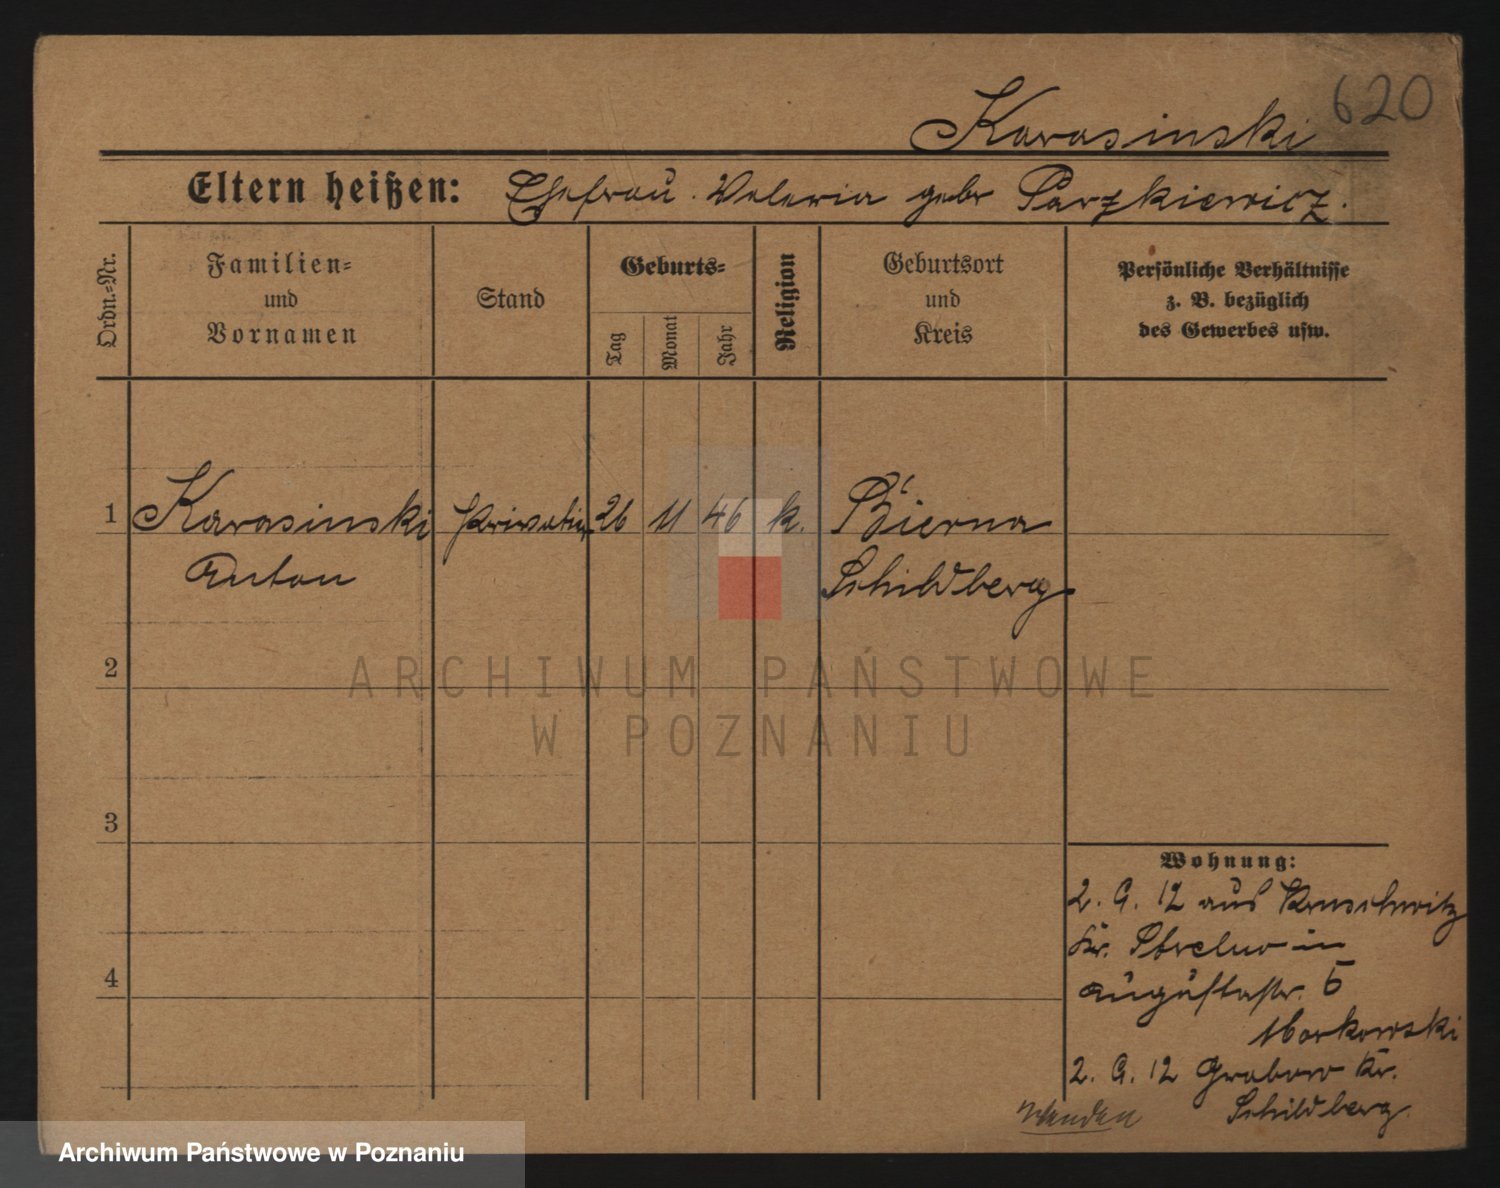 620
Karasinski
Eltern heißen: Ehefrau. Valeria gebr Parzkiewicz.
Ordn.-Nr.
Familien-
und
Vornamen
Stand
Geburts-
Tag
Monat
Jahr
Religion
Geburtsort
und
Kreis
Persönliche Verhältnisse
z. B. bezüglich
des Gewerbes usw.
1 Karasinski Privatier 26 11 46 k. Bierna
Anton Schildberg
2
ARCHIWUM PAŃSTWOWE
W POZNANIU
3
Wohnung:
2. 9. 12 aus Kruschwitz
Kr. Strelno in
Augustastr. 5
Morkowski
4
2. 9. 12 Grabow Kr.
Schildberg
Wenden
Archiwum Państwowe w Poznaniu